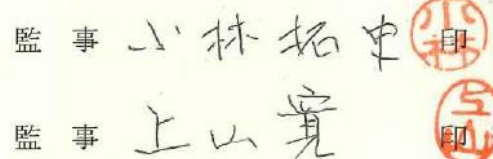 監事 小林拓史 印
監事 上山寛 印